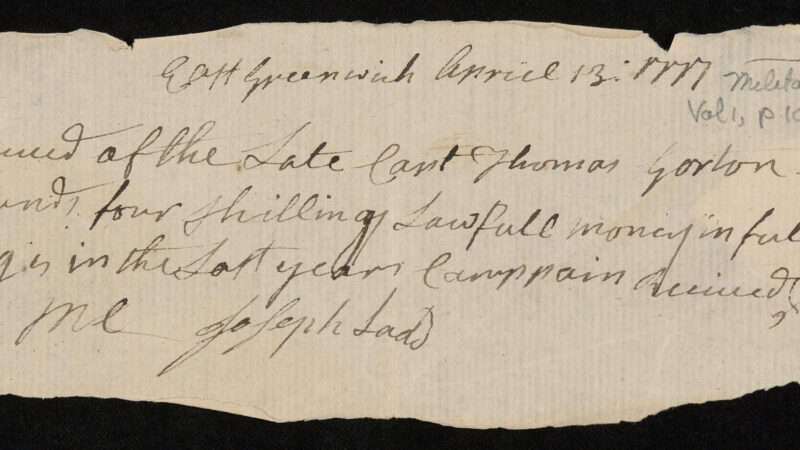 East Greenwich Apriel 13: 1777
Milita
Vol 1, p. 10
uied of the Late Capt Thomas Gorton
unds four Shillings Lawfull money in full
gis in the Last years Camppain Reciued
Me Joseph Ladd